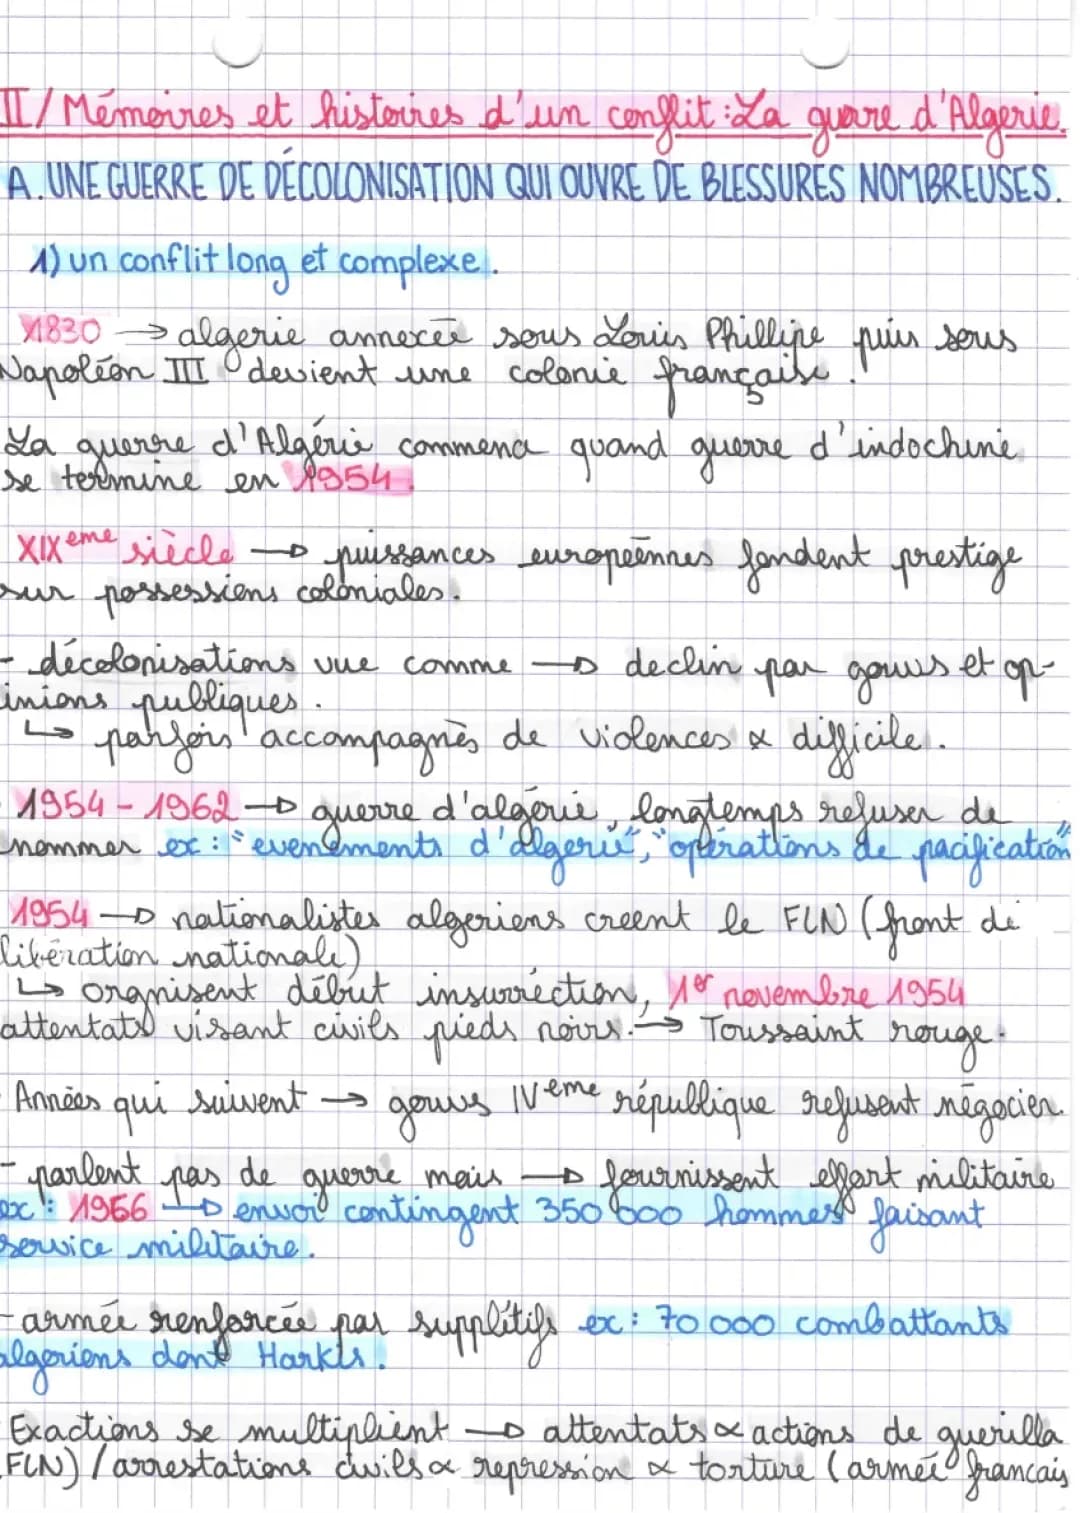 II/ Mémoires et histoires d'un conflit : La guerre d'Algerie.
A. UNE GUERRE DE DÉCOLONISATION QUI OUVRE DE BLESSURES NOMBREUSES.
1) un conflit long et complexe.
1830 → algerie annexée sous Louis Phillipe puis sous
Napoléon III devient une colonie française.
La guerre d'Algérie commence quand guerre d'indochine
se termine en 1954.
XIXeme siècle → puissances européennes fondent prestige
sur possessions coloniales.
- décolonisations vue comme → declin par gouvs et op-
inions publiques.
↳ parfois accompagnés de violences & difficile.
1954 - 1962 → guerre d'algérie, longtemps refuser de
nommer ex : "evenements d'algerie", "opérations de pacification"
1954 → nationalistes algeriens creent le FLN (front de
libération nationale)
↳ organisent début insurréction, 1er novembre 1954
attentats visant civils pieds noirs. → Toussaint rouge.
Années qui suivent → gouvs IVeme république refusent négocier.
- parlent pas de guerre mais → fournissent effort militaire
ex : 1956 → envoi contingent 350 000 hommes faisant
service militaire.
- armée renforcée par supplétifs ex : 70 000 combattants
algeriens dont Harkis.
Exactions se multiplient → attentats & actions de guerilla
FLN) / arrestations civils & repression & torture (armée francais